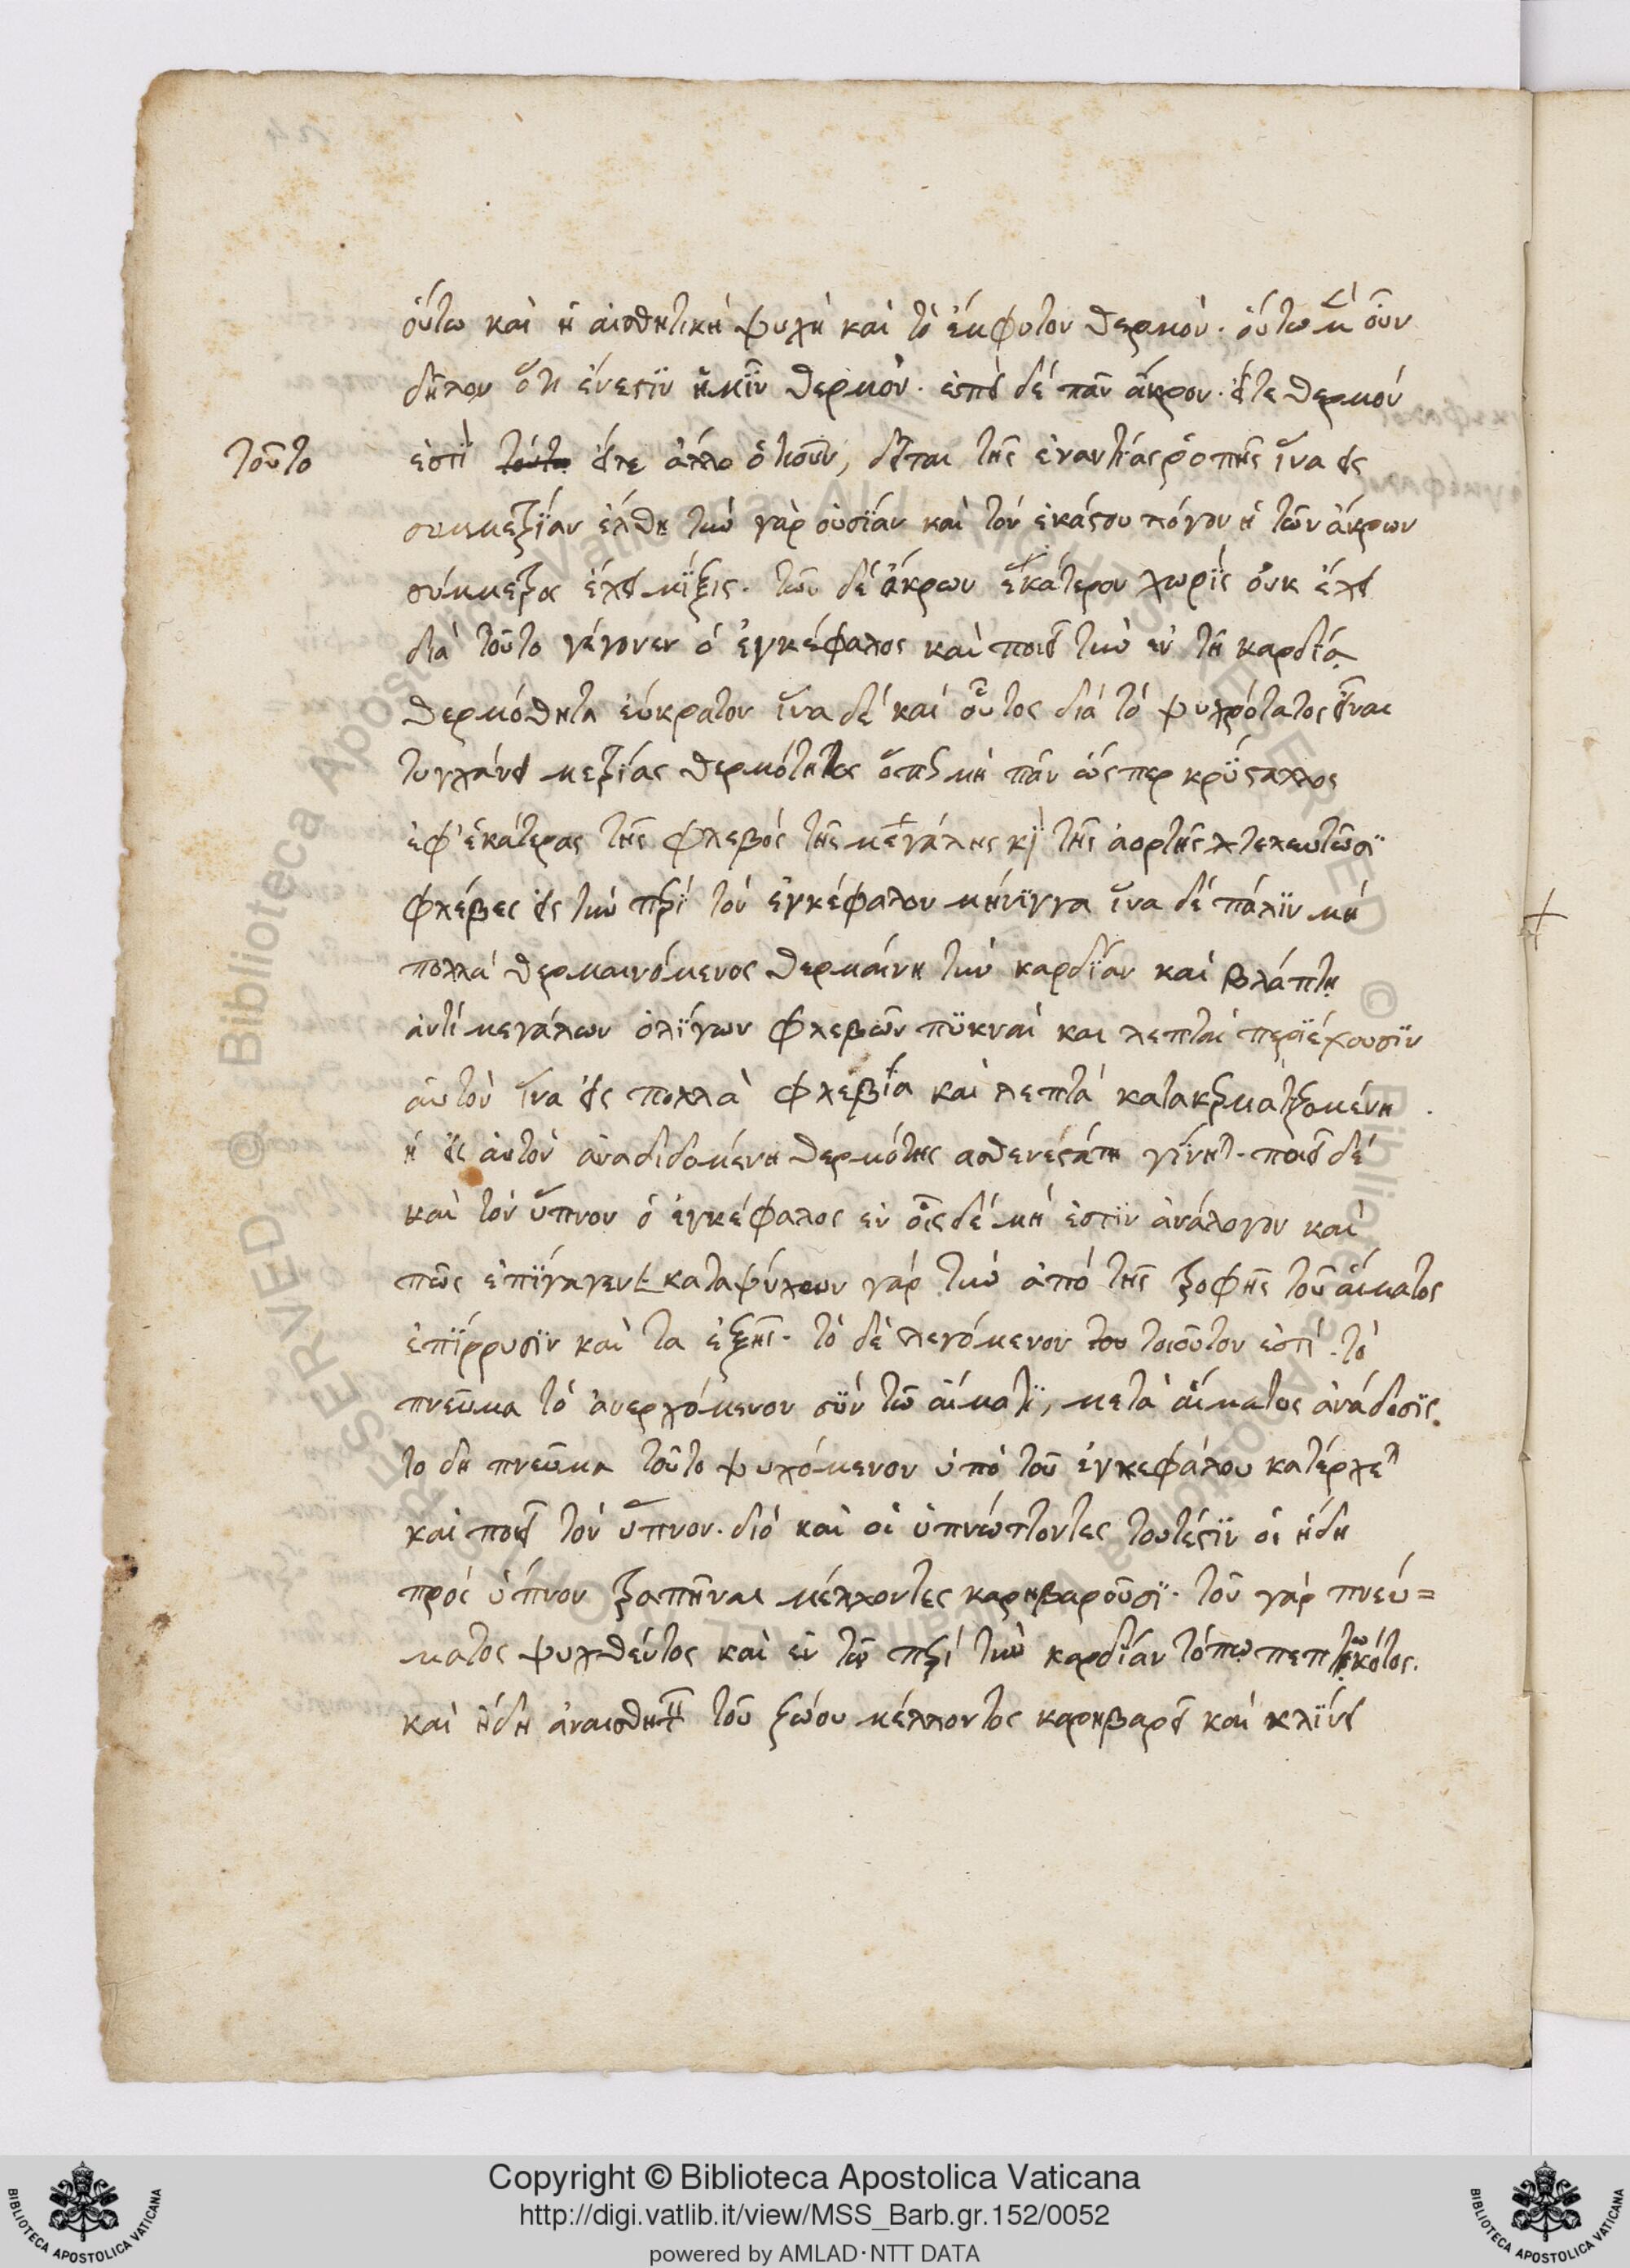 οὕτω καὶ ἡ αἰσθητικὴ ψυχὴ καὶ τὸ ἔμφυτον θερμὸν. οὕτω μὲν οὖν
δῆλον ὅτι ἔνεστϊν ἡμῖν θερμὸν. ἐπεὶ δὲ πᾶν ἄκρον. εἴτε θερμόν
τοῦτο
ἐστὶ τοῦτο εἴτε ἄλλο ὁτιοῦν, δεῖται τῆς ἐναντίας ῥοπῆς ἵνα εἰς
συμμετρίαν ἔλθη τὴν γὰρ οὐσίαν καὶ τὸν ἑκάστου λόγον ἡ τῶν ἄκρων
σύμμετρος ἔχει μίξις. τῶν δὲ ἄκρων ἑκάτερον χωρὶς οὐκ ἔχει
διὰ τοῦτο γέγονεν ὁ ἐγκέφαλος καὶ ποιεῖ τὴν ἐν τῇ καρδίᾳ
θερμότητα εὔκρατον ἵνα δὲ καὶ οὗτος διὰ τὸ ψυχρότατος εἶναι
τυγχάνει μετρίας θερμότητος ὅπως μὴ πᾶν ὥσπερ κρύσταλλος
ἐφ' ἑκάτερας τῆς φλεβὸς τῆς μεγάλης καὶ τῆς ἀορτῆς τελευτῶσϊ
φλέβες εἰς τὴν περὶ τὸν ἐγκέφαλον μήνιγγα ἵνα δὲ πάλϊν μὴ
πολλὰ θερμαινόμενος θερμαίνη τὴν καρδίαν καὶ βλάπτῃ
ἀντὶ μεγάλων ὀλίγων φλεβῶν πυκναὶ και λεπταὶ περιέχουσϊν
αὐτὸν ἵνα εἰς πολλὰ φλεβία καὶ λεπτὰ κατακερματιζομένη
ἡ εἰς αὐτὸν ἀναδιδομένη θερμότης ἀσθενεστάτη γίνηται. ποιεῖ δὲ
καὶ τὸν ὕπνον ὁ ἐγκέφαλος ἐν οἷς δὲ μή ἐστιν ἀνάλογον καὶ
πῶς ἐπήγαγεν καταψύχων γὰρ τὴν ἀπὸ τῆς τροφῆς τοῦ αἵματος
ἐπίρρυσϊν καὶ τα ἑξῆς. τὸ δὲ λεγόμενον του τοιοῦτον ἐστί. τὸ
πνεῦμα τὸ ἀνερχόμενον σὺν τῶ αἵματϊ, μετὰ αἵματος ἀνάδοσϊς.
το δὴ πνεῦμα τοῦτο ψυχόμενον ὑπὸ τοῦ ἐγκεφάλου κατέρχεται
καὶ ποιεῖ τὸν ὕπνον. διὸ καὶ οἱ ὑπνώττοντες τουτέστϊν οἱ ἤδη
πρὸς ὕπνον τραπῆναι μέλλοντες καρηβαροῦσϊ. τοῦ γὰρ πνεύ=
ματος ψυχθέντος καὶ ἐν τῶ περὶ τὴν καρδίαν τόπω πεπτωκότος.
καὶ ἤδη ἀναισθητεῖν τοῦ ζώου μέλλοντος καρηβαρεῖ καὶ κλίνει
Copyright © Biblioteca Apostolica Vaticana
http://digi.vatlib.it/view/MSS_Barb.gr.152/0052
powered by AMLAD·NTT DATA